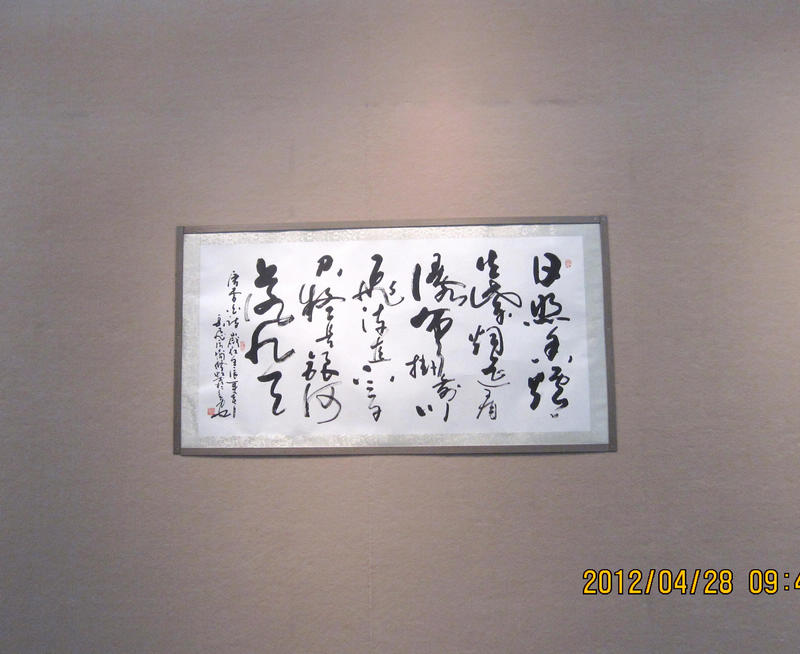 日照香爐
生紫烟遥看
瀑布掛前川
飛流直下三千
尺疑是銀河
落九天
唐李白詩
2012/04/28 09:4